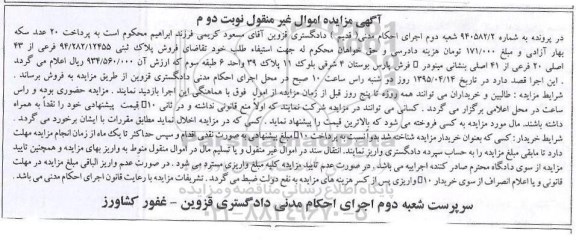 آگهی مزایده اموال غیر منقول نوبت دوم
در پرونده به شماره ۹۴۰۵۸۲/۲ شعبه دوم اجرای احکام مدنی دادگستری قزوین آقای مسعود کریمی فرزند ابراهیم محکوم است به پرداخت ۲۰ عدد سکه
بهار آزادی و مبلغ ۱۷۱/۰۰۰ تومان هزینه دادرسی در حق محکوم له جهت استیفاء طلب خود تقاضای فروش پلاک ثبتی ۹۴/۲۸۲/۱۲۴۵۵ فرعی از ۴۳
اصلی ۲۰ فرعی از ۴۱ اصلی بنشانی مینودر فرش پارس بوستان ۴ شرقی بلوک ۱۱ پلاک ۳۹ واحد ۶ طبقه سوم که ارزش آن ۹۳۴/۵۶۰/۰۰۰ ریال اعلام می گردد
. این اجرا قصد دارد در تاریخ ۱۳۹۵/۰۴/۱۴ روز شنبه راس ساعت ۱۰ صبح در محل اجرای احکام مدنی دادگستری قزوین از طریق مزایده به فروش برساند .
شرایط مزایده : طالبین و خریداران می توانند همه روزه تا پنج روز قبل از زمان مزایده از اموال فوق با هماهنگی این اجرا بازدید نمایند . مزایده حضوری بوده و راس
ساعت در محل اعلامی برگزار می گردد . کسانی می توانند در مزایده شرکت نمایند که اولاً منع قانونی نداشته و در ثانی ۱۰٪ قیمت پیشنهادی خود را نقداً به همراه
داشته باشند. مال مورد مزایده به کسی فروخته می شود که بالاترین قیمت را پیشنهاد نماید . کسی که در مزایده اخلال نماید مطابق مقررات با ایشان برخورد می گردد .
شرایط خریدار : کسی که بعنوان خریدار مزایده شناخته شد بدواً نسبت به پرداخت ۱۰٪ مبلغ پیشنهادی به صورت نقدی اقدام و سپس حداکثر تا یک ماه از زمان انجام مزایده مهلت
دارد تا مابقی مبلغ مزایده را به حساب سپرده دادگستری واریز نمایند. انتقال سند در اموال غیر منقول و یا تسلیم مال در اموال منقول منوط به واریز بهای مزایده و همچنین تایید
مزایده از سوی دادگاه محترم صادر کننده اجراییه می باشد . در صورت عدم تایید مزایده کلیه مبلغ واریزی مسترد می شود . در صورت عدم واریز الباقی مبلغ مزایده در مهلت
قانونی و یا اعلام انصراف از سوی خریدار ۱۰٪ واریزی پس از کسر هزینه های مزایده به نفع دولت ضبط می گردد . تشریفات مزایده با رعایت قانون اجرای احکام مدنی می باشد .
سرپرست شعبه دوم اجرای احکام مدنی دادگستری قزوین - غفور کشاورز